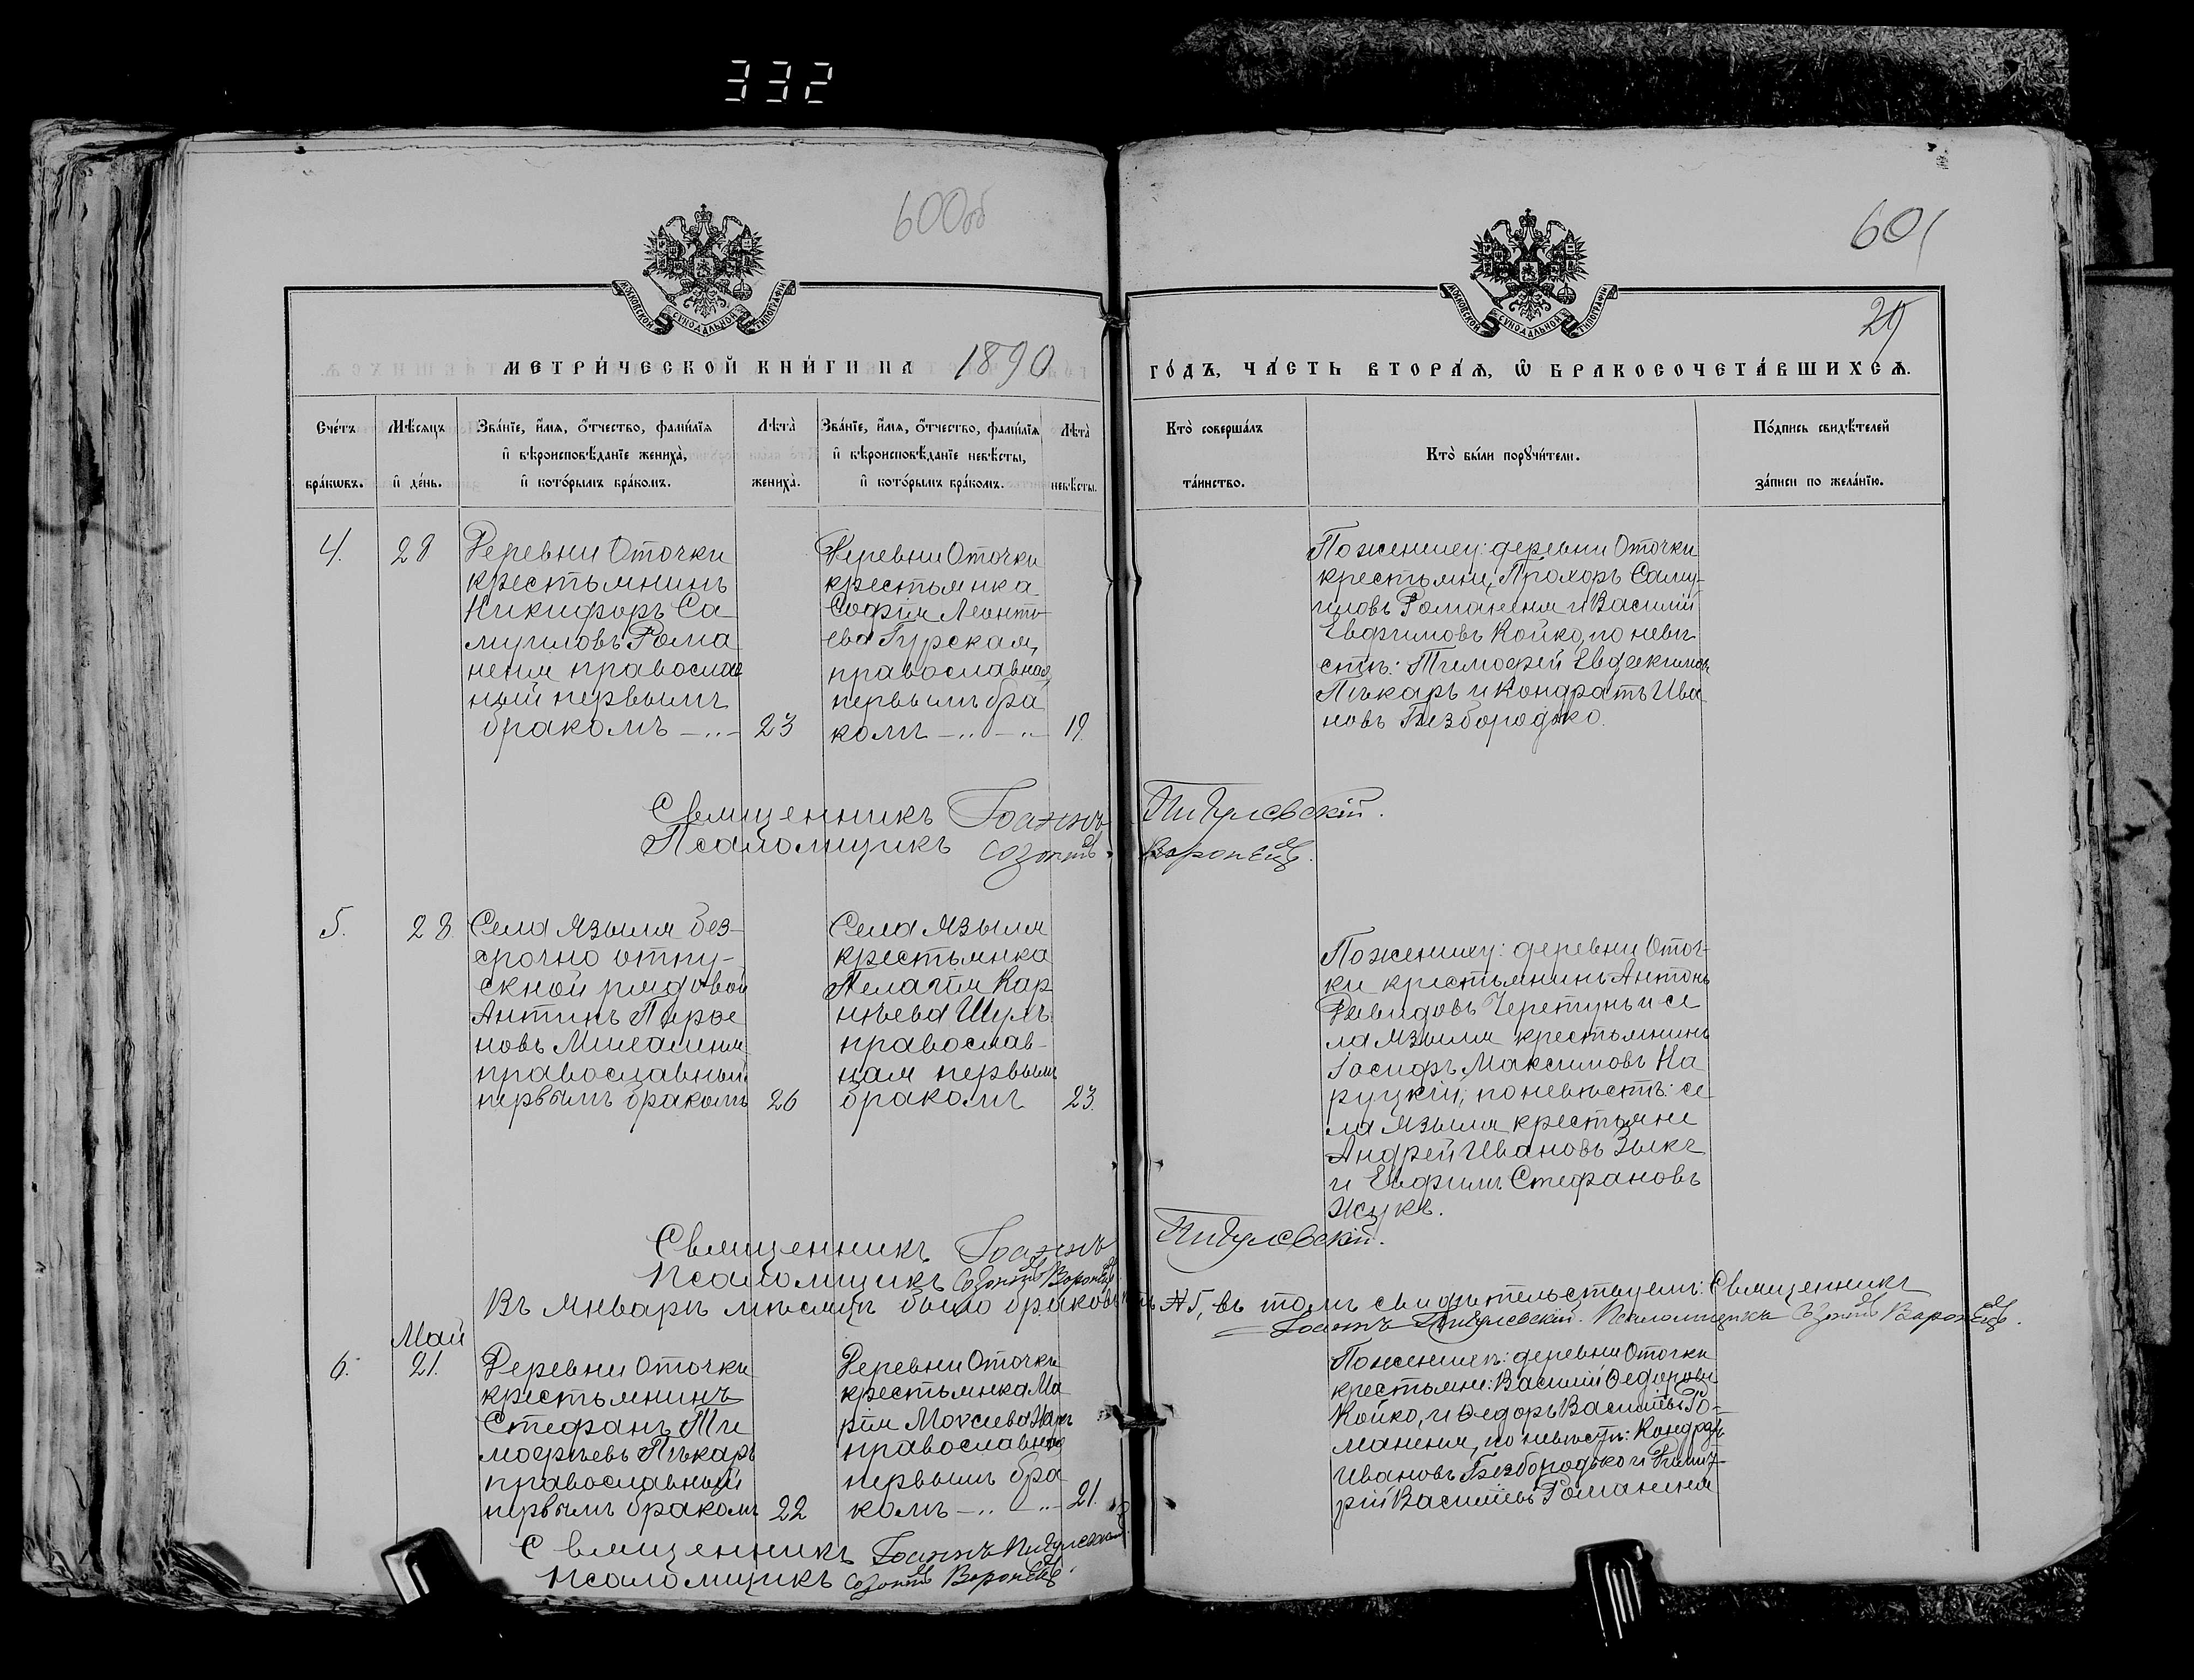 332
600об
601
29
МОСКОВСКОЙ СУНОДАЛЬНОЙ ТИПОГРАФІИ
МОСКОВСКОЙ СУНОДАЛЬНОЙ ТИПОГРАФІИ
МЕТРИ́ЧЕСКОЙ КНИ́ГИ НА 1890
ГО́ДЪ, ЧА́СТЬ ВТОРА́Ѧ, Ѡ҆ БРАКОСОЧЕТА́ВШИХСѦ.
Сче́тъ бра́кѡвъ.
Мѣ́сяцъ и҆ де́нь.
Зва́нїе, и҆́мѧ, ѻ҆́тчество, фами́лїѧ
и҆ вѣроисповѣ́данїе жениха̀,
и҆ кото́рымъ бра́комъ.
Лѣ́та̀ жениха̀.
Зва́нїе, и҆́мѧ, ѻ҆́тчество, фами́лїѧ
и҆ вѣроисповѣ́данїе невѣ́сты,
и҆ кото́рымъ бра́комъ.
Лѣ́та̀ невѣ́сты.
Кто̀ соверша́лъ
та́инство.
Кто̀ бы́ли порꙋчи́тели.
По́дпись свидѣ́телей
за́писи по жела́нїю.
4.
28
Деревни Оточки
крестьянинъ
Никифоръ Са-
муиловъ Рома
неня православ
ный первымъ
бракомъ
23
Деревни Оточки
крестьянка
Софія Леонть-
ева Гурская,
православная,
первымъ бра
комъ
19.
По жениху: деревни Оточки
крестьяне, Прохоръ Саму-
иловъ Романеня и Василій
Евфимовъ Койко, по невѣ
стѣ: Тимофей Евдокимовъ
Пѣкаръ и Кондратъ Ива
новъ Безбородько.
Священникъ Іоаннъ Пигулевскій.
Псаломщикъ Созонтъ Воронецъ.
5.
28.
Села Языля без-
срочно отпу-
скной рядовой
Антинъ Парѳе
новъ Михаленя
православный
первымъ бракомъ
26
Села Языля
крестьянка
Пелагія Кар
нѣева Шуль
православ-
ная первымъ
бракомъ
23.
По жениху: деревни Оточ-
ки крестьянинъ Антонъ
Давидовъ Черетунъ и се
ла Языля крестьянинъ
Іосифъ Максимовъ На
руцкій; по невѣстѣ: се
ла Языля крестьяне
Андрей Ивановъ Зыкъ
и Евфимъ Стефановъ
Жукъ.
Священникъ Іоаннъ Пигулевскій.
Псаломщикъ Созонтъ Воронецъ.
Въ Январѣ мѣсяцѣ было браковъ № 5, въ томъ свидѣтельствуемъ: Священникъ
Іоаннъ Пигулевскій. Псаломщикъ Созонтъ Воронецъ.
Май
6.
21.
Деревни Оточки
крестьянинъ
Стефанъ Ти
мофѣевъ Пѣкаръ
православный
первымъ бракомъ
22
Деревни Оточки
крестьянка Ма
рія
православная
первымъ бра
комъ
21.
По жениху: деревни Оточки
крестьяне: Василій Ѳедоровъ
Койко, и Ѳедоръ Васильевъ Ро-
маненя, по невѣстѣ: Кондратъ
Ивановъ Безбородько и Димит-
рій Васильевъ Романеня
Священникъ Іоаннъ Пигулевскій
Псаломщикъ Созонтъ Воронецъ.